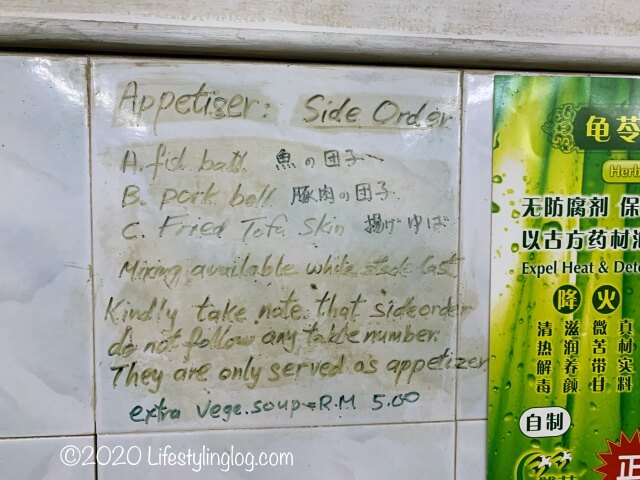 Appetiser: Side Order
A. fish ball 魚の団子
B. pork ball 豚肉の団子
C. Fried Tofu Skin 揚げゆば
Mixing available while stock last
Kindly take note that side order
do not follow any table number.
They are only served as appetizer
extra vege. soup = R.M 5.00
©2020 Lifestylinglog.com
龟苓
Herb
无防腐剂 保
以古方药材
Expel Heat & Deto
降火
清热解毒
滋润养颜
微苦带甘
真材实料
自制
正